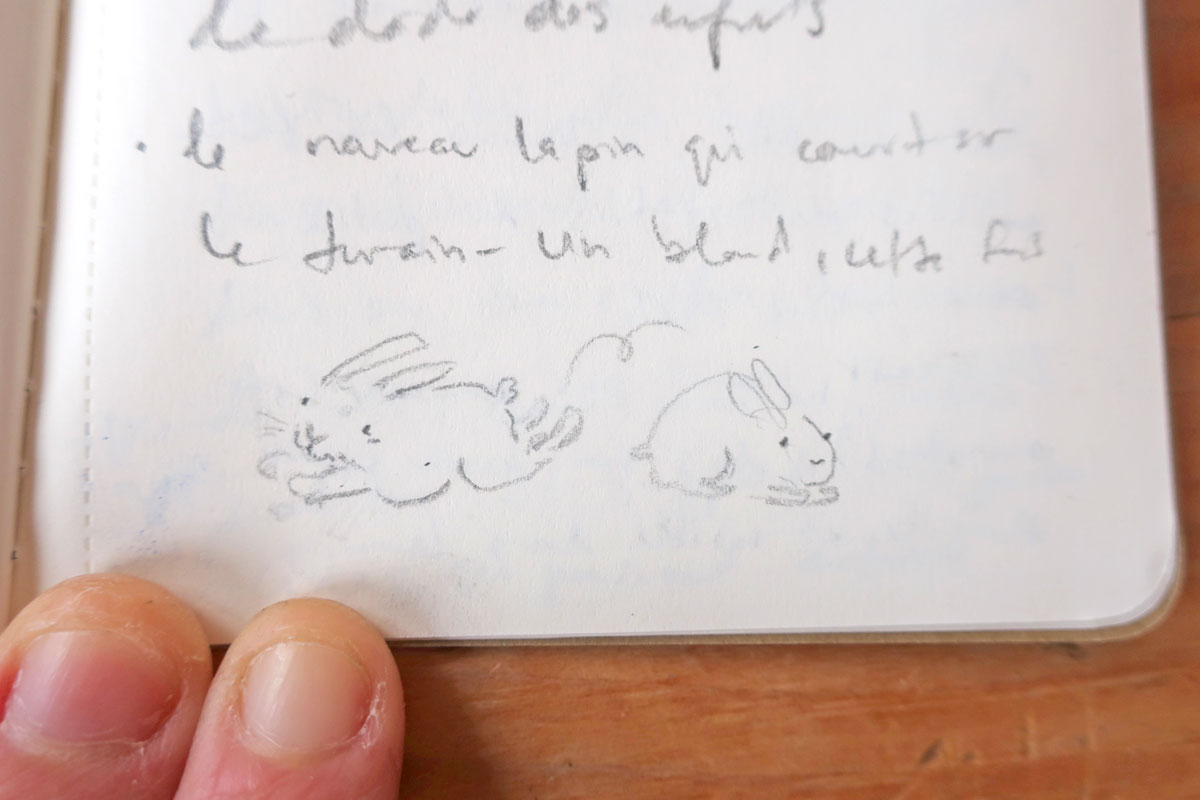 le dodo des enfants
• le nouveau lapin qui court sur
le terrain – un blond, cette fois